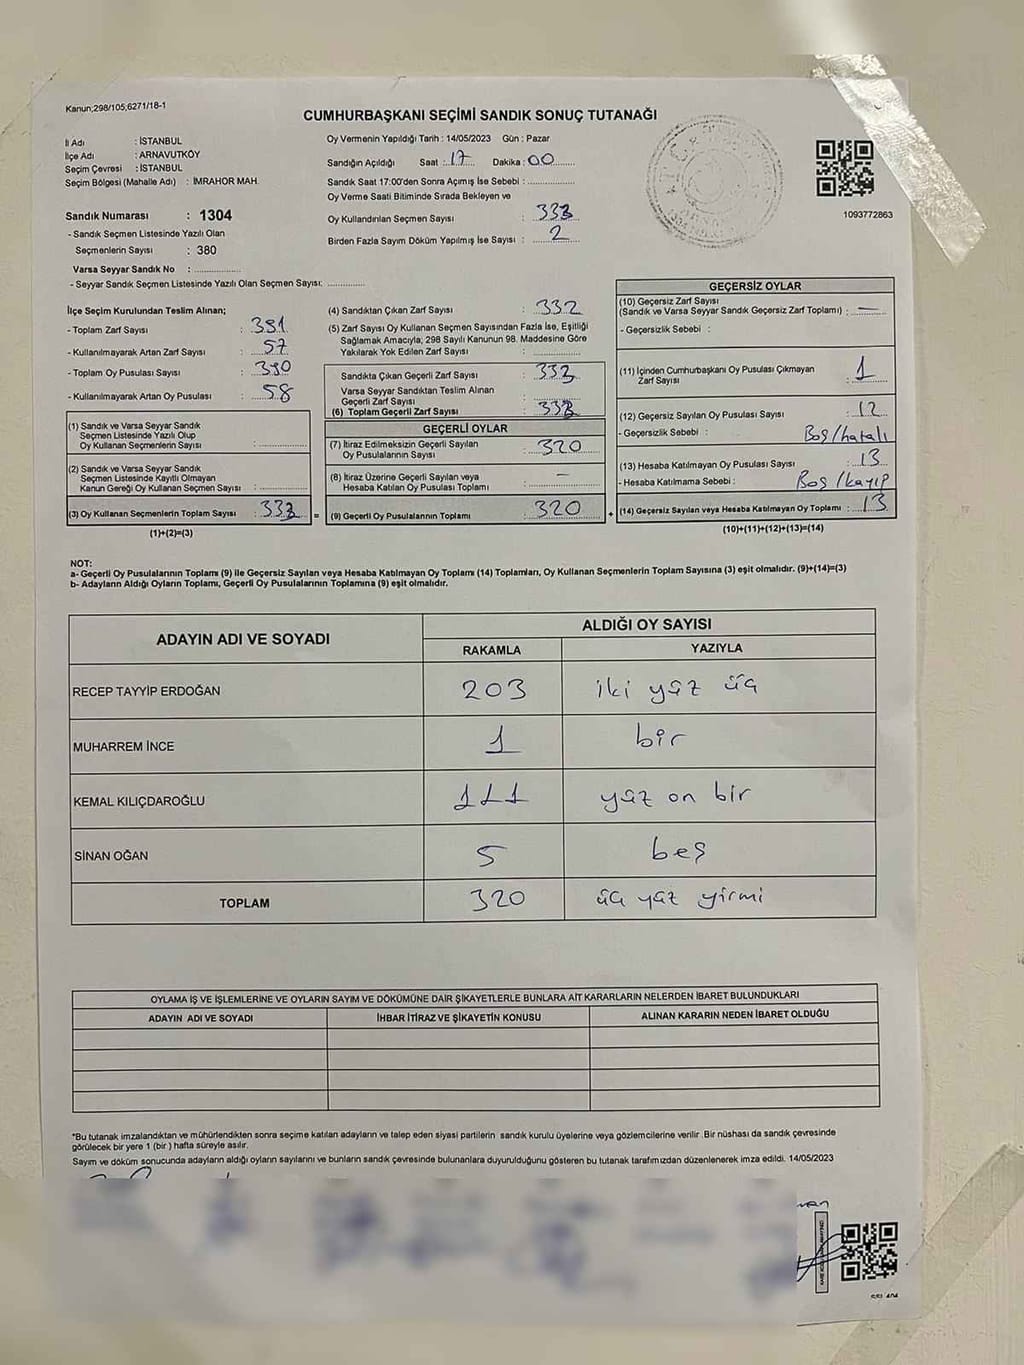 Kanun;298/105,6271/18-1
CUMHURBAŞKANI SEÇİMİ SANDIK SONUÇ TUTANAĞI
İl Adı : İSTANBUL
İlçe Adı : ARNAVUTKÖY
Seçim Çevresi : İSTANBUL
Seçim Bölgesi (Mahalle Adı) : İMRAHOR MAH.
Sandık Numarası : 1304
- Sandık Seçmen Listesinde Yazılı Olan
Seçmenlerin Sayısı : 380
Varsa Seyyar Sandık No :
- Seyyar Sandık Seçmen Listesinde Yazılı Olan Seçmen Sayısı:
Oy Vermenin Yapıldığı Tarih : 14/05/2023 Gün : Pazar
Sandığın Açıldığı Saat : 17 Dakika : 00
Sandık Saat 17:00'den Sonra Açımış İse Sebebi :
Oy Verme Saati Bitiminde Sırada Bekleyen ve
Oy Kullandırılan Seçmen Sayısı : 333
Birden Fazla Sayım Döküm Yapılmış İse Sayısı : 2
1093772863
İlçe Seçim Kurulundan Teslim Alınan;
- Toplam Zarf Sayısı : 391
- Kullanılmayarak Artan Zarf Sayısı : 57
- Toplam Oy Pusulası Sayısı : 390
- Kullanılmayarak Artan Oy Pusulası : 58
(1) Sandık ve Varsa Seyyar Sandık
Seçmen Listesinde Yazılı Olup
Oy Kullanan Seçmenlerin Sayısı :
(2) Sandık ve Varsa Seyyar Sandık
Seçmen Listesinde Kayıtlı Olmayan
Kanun Gereği Oy Kullanan Seçmen Sayısı :
(3) Oy Kullanan Seçmenlerin Toplam Sayısı : 333
(1)+(2)=(3)
(4) Sandıktan Çıkan Zarf Sayısı : 332
(5) Zarf Sayısı Oy Kullanan Seçmen Sayısından Fazla İse, Eşitliği
Sağlamak Amacıyla, 298 Sayılı Kanunun 98. Maddesine Göre
Yakılarak Yok Edilen Zarf Sayısı :
Sandıkta Çıkan Geçerli Zarf Sayısı : 333
Varsa Seyyar Sandıktan Teslim Alınan
Geçerli Zarf Sayısı :
(6) Toplam Geçerli Zarf Sayısı : 333
GEÇERLİ OYLAR
(7) İtiraz Edilmeksizin Geçerli Sayılan
Oy Pusulalarının Sayısı : 320
(8) İtiraz Üzerine Geçerli Sayılan veya
Hesaba Katılan Oy Pusulası Toplamı : —
= (9) Geçerli Oy Pusulalarının Toplamı : 320 +
GEÇERSİZ OYLAR
(10) Geçersiz Zarf Sayısı
(Sandık ve Varsa Seyyar Sandık Geçersiz Zarf Toplamı) : —
- Geçersizlik Sebebi :
(11) İçinden Cumhurbaşkanı Oy Pusulası Çıkmayan
Zarf Sayısı : 1
(12) Geçersiz Sayılan Oy Pusulası Sayısı : 12
- Geçersizlik Sebebi : Boş/hatalı
(13) Hesaba Katılmayan Oy Pusulası Sayısı : 13
- Hesaba Katılmama Sebebi : Boş/kayıp
(14) Geçersiz Sayılan veya Hesaba Katılmayan Oy Toplamı : 13
(10)+(11)+(12)+(13)=(14)
NOT:
a- Geçerli Oy Pusulalarının Toplamı (9) ile Geçersiz Sayılan veya Hesaba Katılmayan Oy Toplamı (14) Toplamları, Oy Kullanan Seçmenlerin Toplam Sayısına (3) eşit olmalıdır. (9)+(14)=(3)
b- Adayların Aldığı Oyların Toplamı, Geçerli Oy Pusulalarının Toplamına (9) eşit olmalıdır.
ADAYIN ADI VE SOYADI
ALDIĞI OY SAYISI
RAKAMLA YAZIYLA
RECEP TAYYİP ERDOĞAN 203 iki yüz üç
MUHARREM İNCE 1 bir
KEMAL KILIÇDAROĞLU 111 yüz on bir
SİNAN OĞAN 5 beş
TOPLAM 320 üç yüz yirmi
OYLAMA İŞ VE İŞLEMLERİNE VE OYLARIN SAYIM VE DÖKÜMÜNE DAİR ŞİKAYETLERLE BUNLARA AİT KARARLARIN NELERDEN İBARET BULUNDUKLARI
ADAYIN ADI VE SOYADI İHBAR İTİRAZ VE ŞİKAYETİN KONUSU ALINAN KARARIN NEDEN İBARET OLDUĞU
*Bu tutanak imzalandıktan ve mühürlendikten sonra seçime katılan adayların ve talep eden siyasi partilerin sandık kurulu üyelerine veya gözlemcilerine verilir. Bir nüshası da sandık çevresinde
görülecek bir yere 1 (bir ) hafta süreyle asılır.
Sayım ve döküm sonucunda adayların aldığı oyların sayılarını ve bunların sandık çevresinde bulunanlara duyurulduğunu gösteren bu tutanak tarafımızdan düzenlenerek imza edildi. 14/05/2023